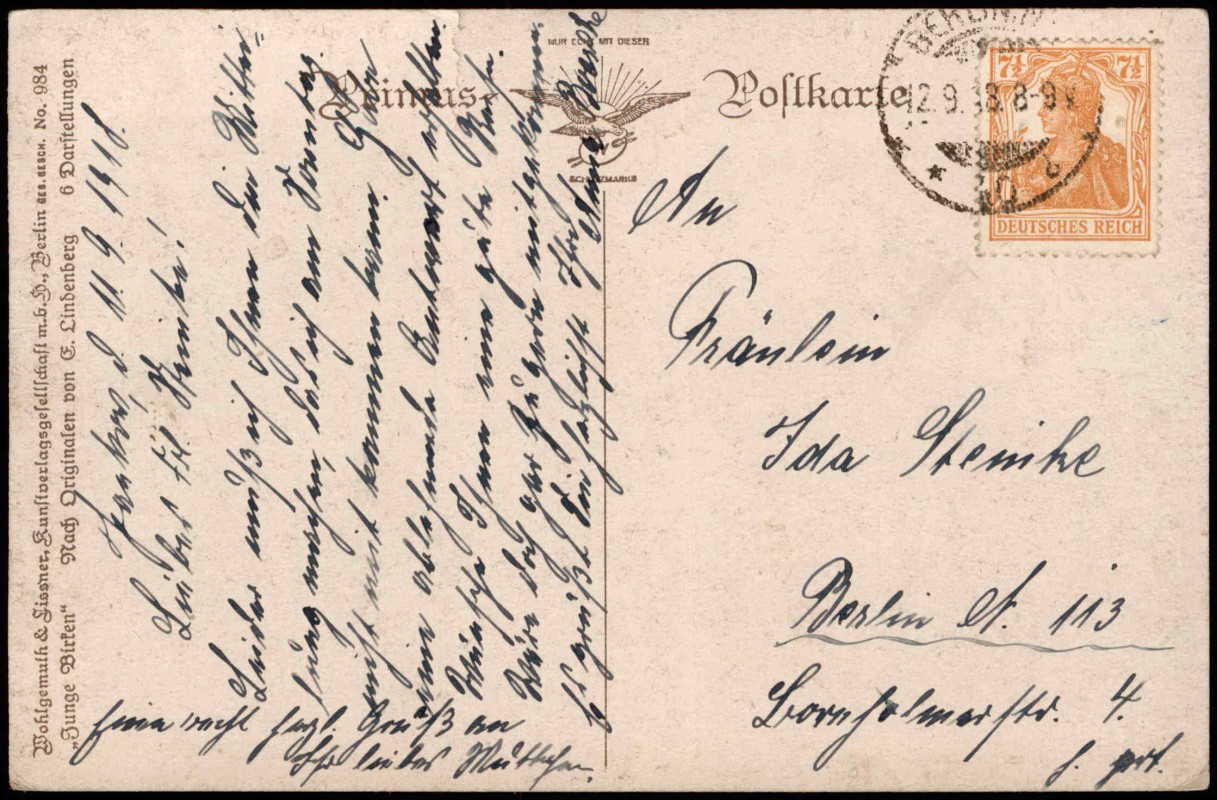 Wohlgemuth & Lissner, Kunstverlagsgesellschaft m.b.H., Berlin GES. GESCH. No. 984
„Junge Birken“ Nach Originalen von E. Lindenberg 6 Darstellungen
Primus-
Postkarte
NUR ECHT MIT DIESER
SCHUTZMARKE
BERLIN.N
12.9.18.8-9V
7½ 7½
DEUTSCHES REICH
d 11.9.1918.
Liebes Frl. Steinke!
Leider muß ich Ihnen die Mittei-
lung machen, daß ich am Sonntag
nicht mit kommen kann. Habe
eine ablehnende Antwort erhalten.
Wünsche Ihnen eine gute Reise.
Wäre doch gar zu gern mitgekommen.
Es grüßt Sie herzlichst Ihre
Einen recht herzl. Gruß an
Ihr liebes Muttchen.
An
Fräulein
Ida Steinke
Berlin N. 113
Bornholmerstr. 4.